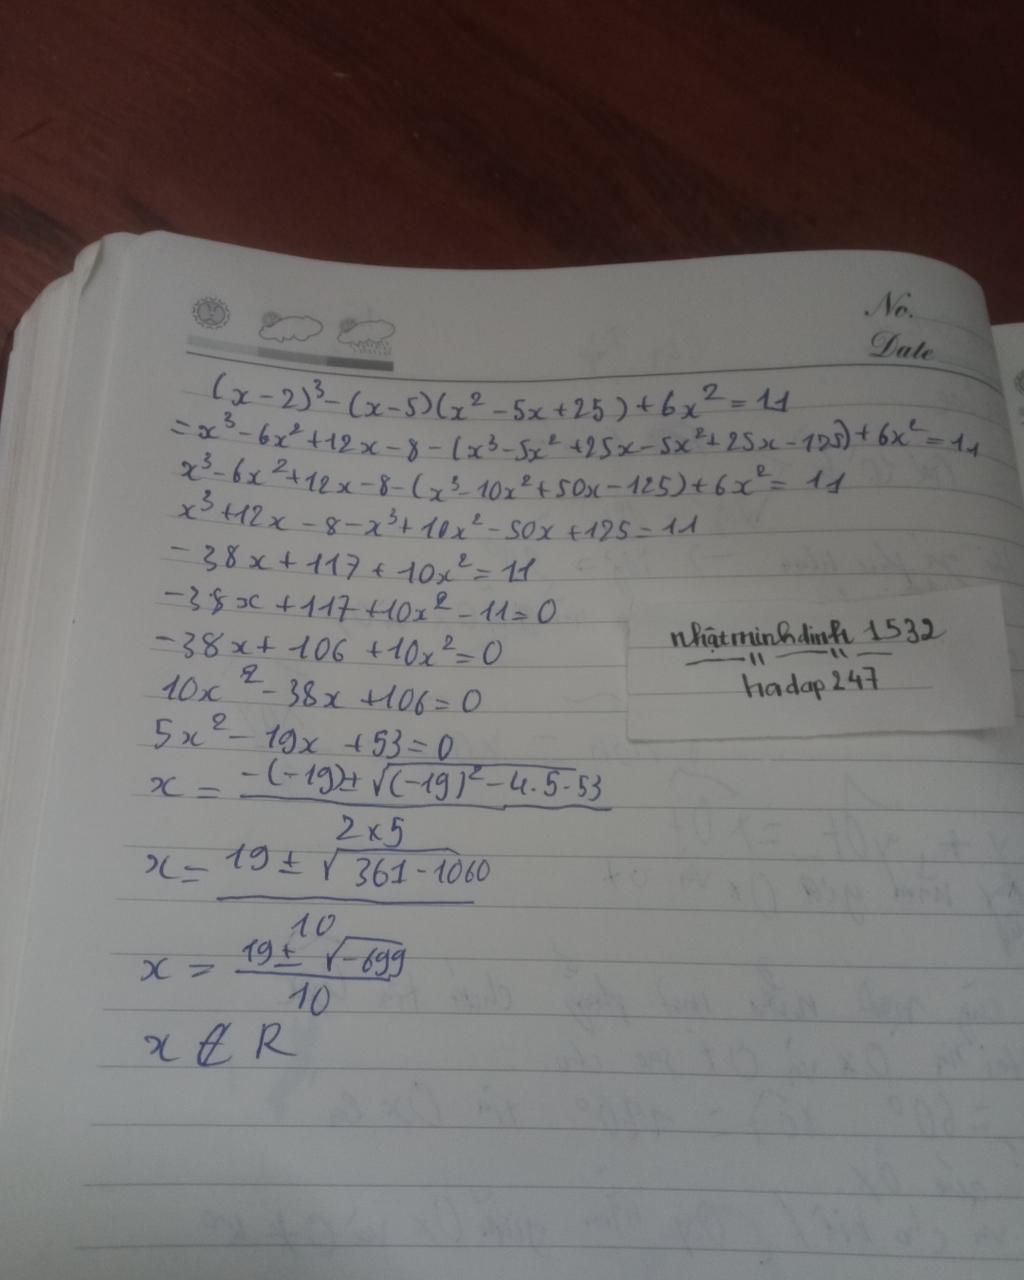 No.
Date
(x-2)³-(x-5)(x²-5x+25)+6x²=11
=x³-6x²+12x-8-(x³-5x²+25x-5x²+25x-125)+6x²=11
x³-6x²+12x-8-(x³-10x²+50x-125)+6x²=11
x³+12x-8-x³+10x²-50x+125=11
-38x+117+10x²=11
-38x+117+10x²-11=0
-38x+106+10x²=0
10x²-38x+106=0
5x²-19x+53=0
x=(-(-19)±√((-19)²-4.5.53))/(2×5)
x=(19±√(361-1060))/10
x=(19±√(-699))/10
x∉R
nhậtminhdinh1532
hadap247